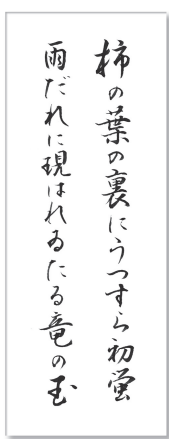 柿の葉の裏にうつすら初蛍
雨だれに現はれゐたる竜の玉